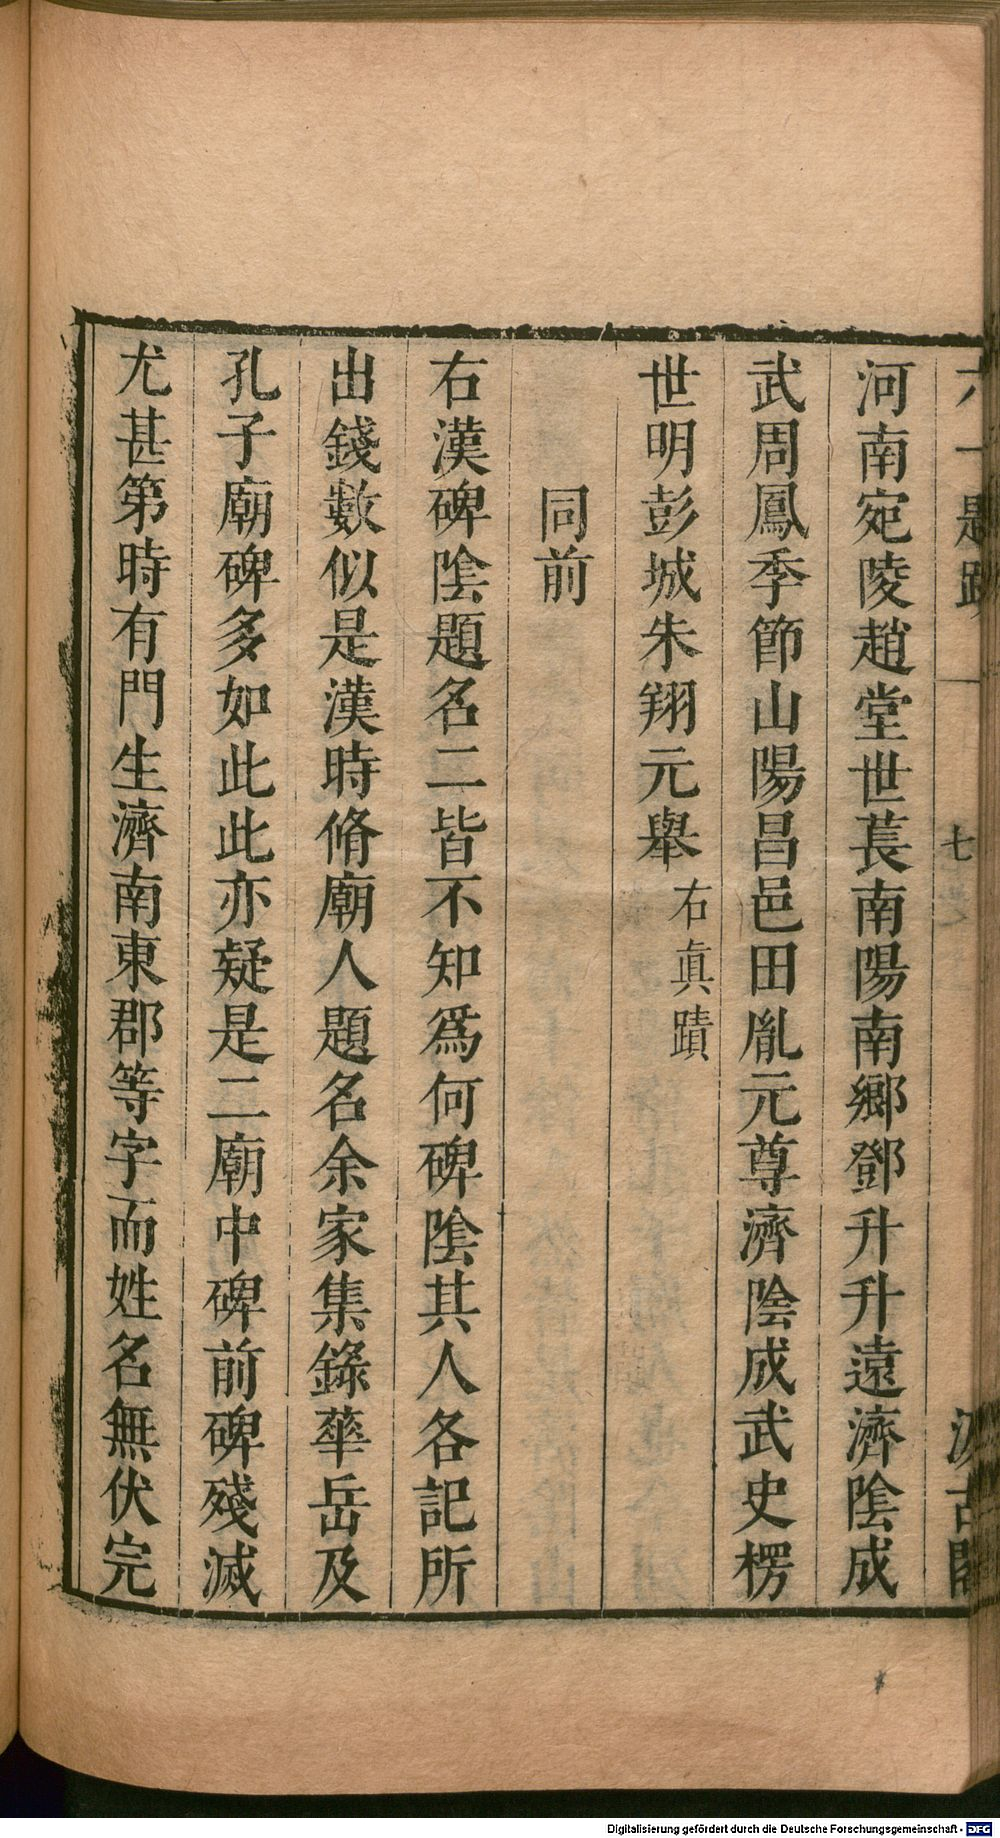 六一題跋
七
汲古閣
河南宛陵趙堂世萇南陽南鄉鄧升升遠濟陰成
武周鳳季節山陽昌邑田胤元尊濟陰成武史楞
世明彭城朱翔元舉右眞蹟
同前
右漢碑陰題名二皆不知爲何碑陰其人各記所
出錢數似是漢時脩廟人題名余家集錄華岳及
孔子廟碑多如此此亦疑是二廟中碑前碑殘滅
尤甚第時有門生濟南東郡等字而姓名無伏完
Digitalisierung gefördert durch die Deutsche Forschungsgemeinschaft - DFG